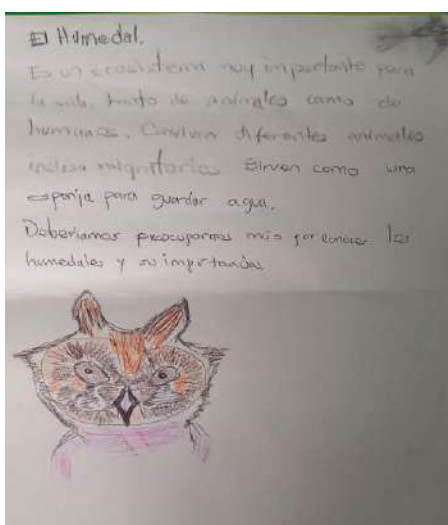 El Humedal.
Es un ecosistema muy importante para
la vida, tanto de animales como de
humanos. Conviven diferentes animales
incluso migratorios Sirven como una
esponja para guardar agua.
Deberiamos preocuparnos más por conocer los
humedales y su importancia